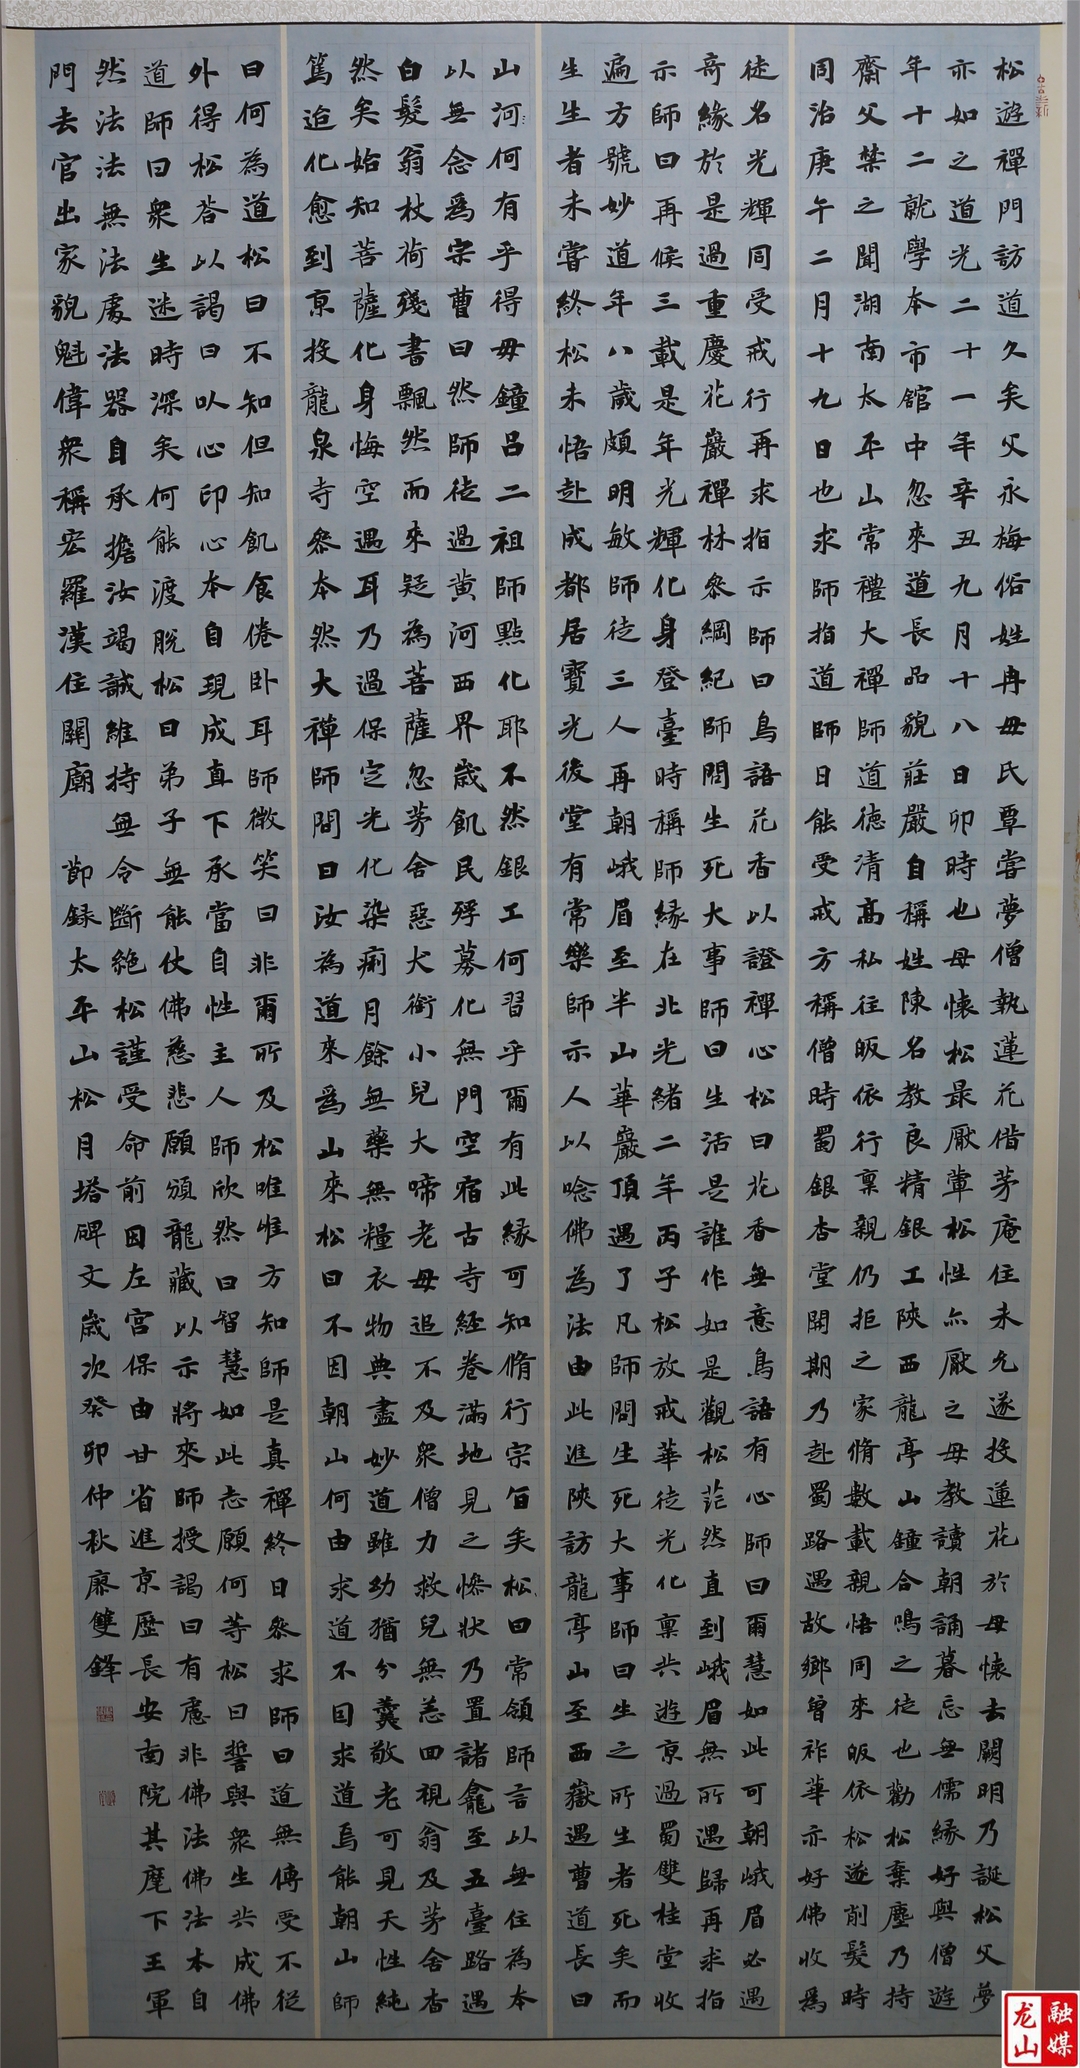 松遊禪門訪道久矣父永梅俗姓冉母氏覃嘗夢僧執蓮花借茅庵住未允遂投蓮花於母懷去闕明乃誕松父夢
亦如之道光二十一年辛丑九月十八日卯時也母懷松最厭葷松性亦厭之母教讀朝誦暮忘無儒緣好與僧遊
年十二就學本市館中忽來道長品貌莊嚴自稱姓陳名教良精銀工陝西龍亭山鐘合鳴之徒也勸松棄塵乃持
齋父禁之聞湖南太平山常禮大禪師道德清高私往皈依行稟親仍拒之家脩數載親悟同來皈依松遂削髮時
同治庚午二月十九日也求師指道師日能受戒方稱僧時蜀銀杏堂開期乃赴蜀路遇故鄉曾祚華亦好佛收爲
徒名光輝同受戒行再求指示師曰鳥語花香以證禪心松曰花香無意鳥語有心師曰爾慧如此可朝峨眉必遇
奇緣於是過重慶花巖禪林參綱紀師問生死大事師曰生活是誰作如是觀松茫然直到峨眉無所遇歸再求指
示師曰再候三載是年光輝化身登臺時稱師緣在北光緒二年丙子松放戒華徒光化稟共遊京過蜀雙桂堂收
遍方號妙道年八歲頗明敏師徒三人再朝峨眉至半山華嚴頂遇了凡師問生死大事師曰生之所生者死矣而
生生者未嘗終松未悟赴成都居寶光後堂有常樂師示人以唸佛為法由此進陝訪龍亭山至西嶽遇曹道長曰
山河何有乎得毋鐘呂二祖師點化耶不然銀工何習乎爾有此緣可知脩行宗旨矣松曰常領師言以無住為本
以無念爲宗曹曰然師徒過黃河西界歲飢民殍募化無門空宿古寺經卷滿地見之慘狀乃置諸龕至五臺路遇
白髮翁杖荷殘書飄然而來疑為菩薩忽茅舍惡犬銜小兒大啼老母追不及衆僧力救兒無恙回視翁及茅舍杳
然矣始知菩薩化身悔空遇耳乃過保定光化染痢月餘無藥無糧衣物典盡妙道雖幼猶分糞敬老可見天性純
篤追化愈到京投龍泉寺參本然大禪師問曰汝為道來爲山來松曰不因朝山何由求道不因求道焉能朝山師
曰何為道松曰不知但知飢食倦卧耳師微笑曰非爾所及松唯唯方知師是真禪終日參求師曰道無傳受不從
外得松答以謁曰以心印心本自現成直下承當自性主人師欣然曰智慧如此志願何等松曰誓與衆生共成佛
道師曰衆生迷時深矣何能渡脫松曰弟子無能仗佛慈悲願頒龍藏以示將來師授謁曰有處非佛法佛法本自
然法法無法處法器自承擔汝竭誠維持無令斷絶松謹受命前因左宮保由甘省進京歷長安南院其麾下王軍
門去官出家貌魁偉衆稱宏羅漢住關廟 節録太平山松月塔碑文歲次癸卯仲秋雙鋒
龙山
融媒